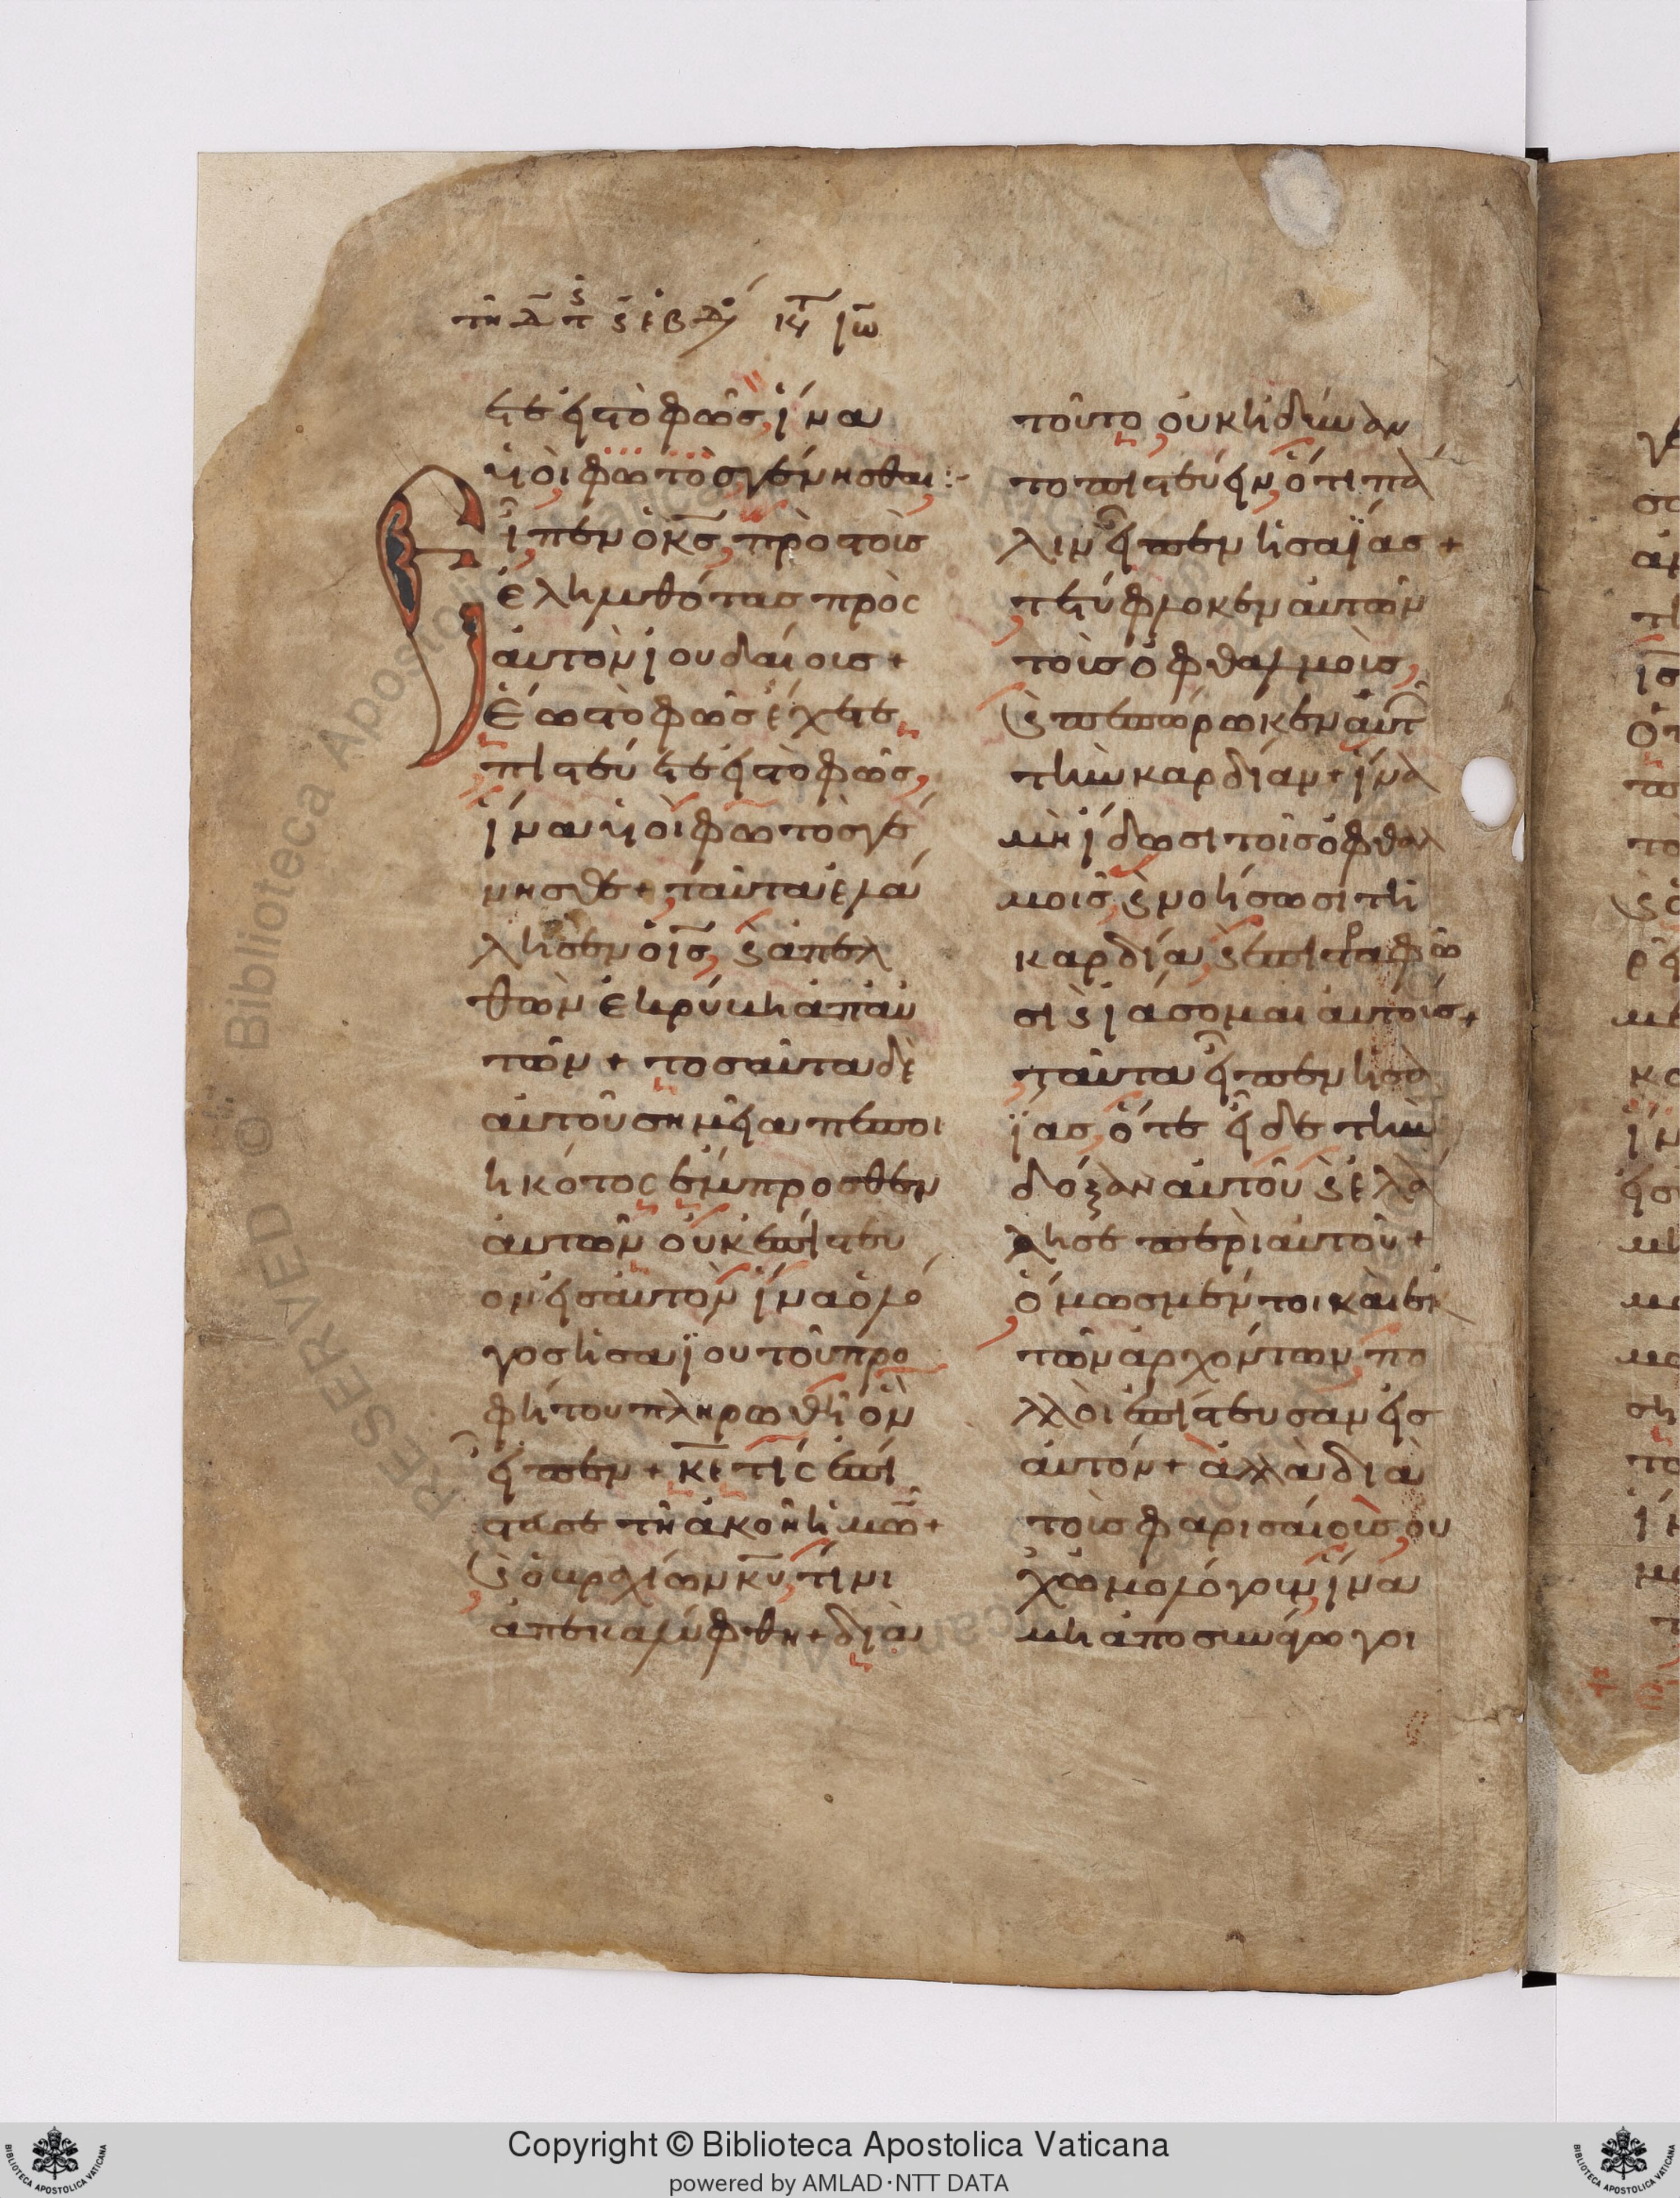 τῆ δ̄ τ ς ϛ̄ ἑβδ κτ ἰω̄
τε εἰς τὸ φῶς, ἵνα
υἱοὶ φωτὸς γένησθαι :-
Εἶπεν ὁ κ̄ς, πρὸ τοὺς
ἐληλυθότας πρὸς
αὐτὸν ἰουδαίοις +
Ἕως τὸ φῶς ἔχετε,
πιστεύετε εἰς τὸ φῶς,
ἵνα υἱοὶ φωτὸς γέ
νησθε + ταῦτα ἐλά
λησεν ὁ ῑς, ϗ ἀπελ
θὼν ἐκρύβη ἀπ αὐ
τῶν + τοσαῦτα δὲ
αὐτοῦ σημεῖα πεποι
ηκότος ἔμπροσθεν
αὐτῶν οὐκ ἐπίστευ
ον εἰς αὐτὸν ἵνα ὁ λό
γος ἡσαΐου τοῦ προ
φήτου πληρωθῆ ὃν
εἶπεν + κ̄ε τίς ἐπί
στευσε τῆ ἀκοῆ ἡμῶ +
ϗ ὁ βραχίων κ̄υ, τίνι
ἀπεκαλύφθη + διὰ
τοῦτο οὐκ ἠδύναν
το πιστεύειν, ὅτι πά
λιν εἶπεν ἡσαΐας +
τετύφλοκεν αὐτῶν
τοὺς ὀφθαλμοὺς,
ϗ πεπώρωκεν αὐτ
τὴν καρδίαν + ἵνα
μὴ ἴδωσι τοῖς ὀφθαλ
μοῖς, ϗ νοήσωσι τῆ
καρδία, ϗ ἐπιστραφῶ
σι ϗ ἰάσομαι αὐτοὺς +
ταῦτα εἶπεν ἡσα
ΐας, ὅτε εἶδε τὴν
δόξαν αὐτοῦ ϗ ἐλά
λησε περὶ αὐτοῦ +
ὅμως μέντοι καὶ ἐκ
τῶν ἀρχόντων, πο
λλοὶ ἐπίστευσαν εἰς
αὐτόν + ἀλλὰ διὰ
τοὺς φαρισαίοις, ου
χ ὡμολόγουν, ἵνα
μὴ ἀποσυνάγωγοι